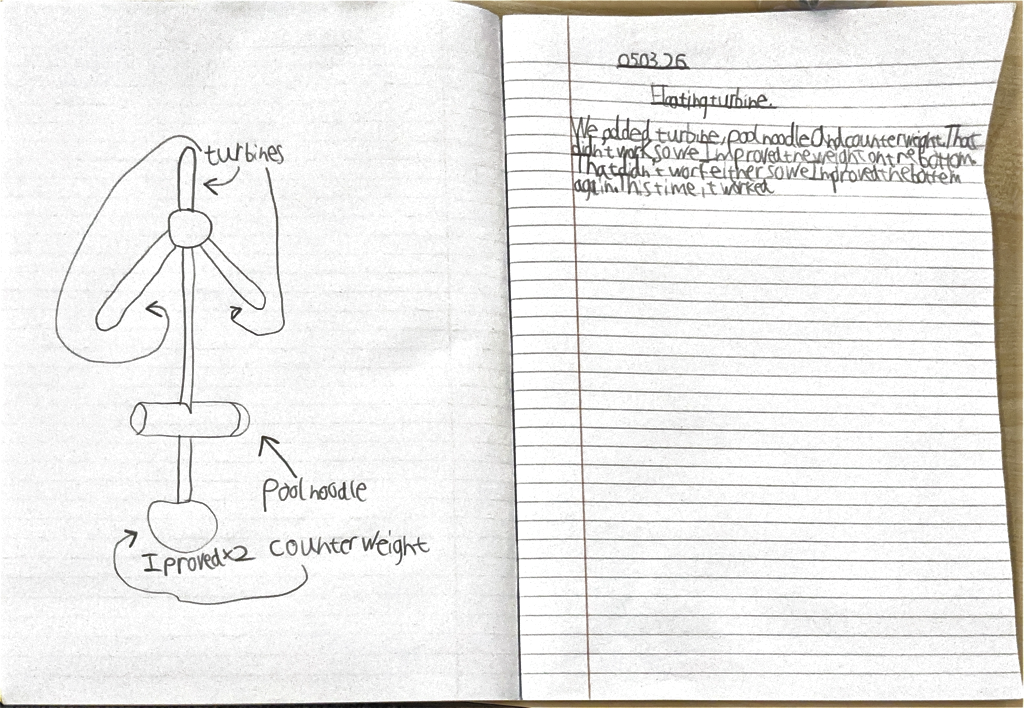 turbines
Pool noodle
Iproved×2 counter weight
050326
Floating turbine.
We added turbine, pool noodle And counter weight. That
didn't work, so we Improved the weight ont he bottom.
That didn't work either so we Improved the bottem
again. This time, it worked